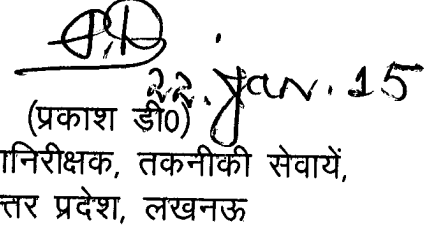 22. Jan. 15
(प्रकाश डी0)
ानिरीक्षक, तकनीकी सेवायें,
त्तर प्रदेश, लखनऊ